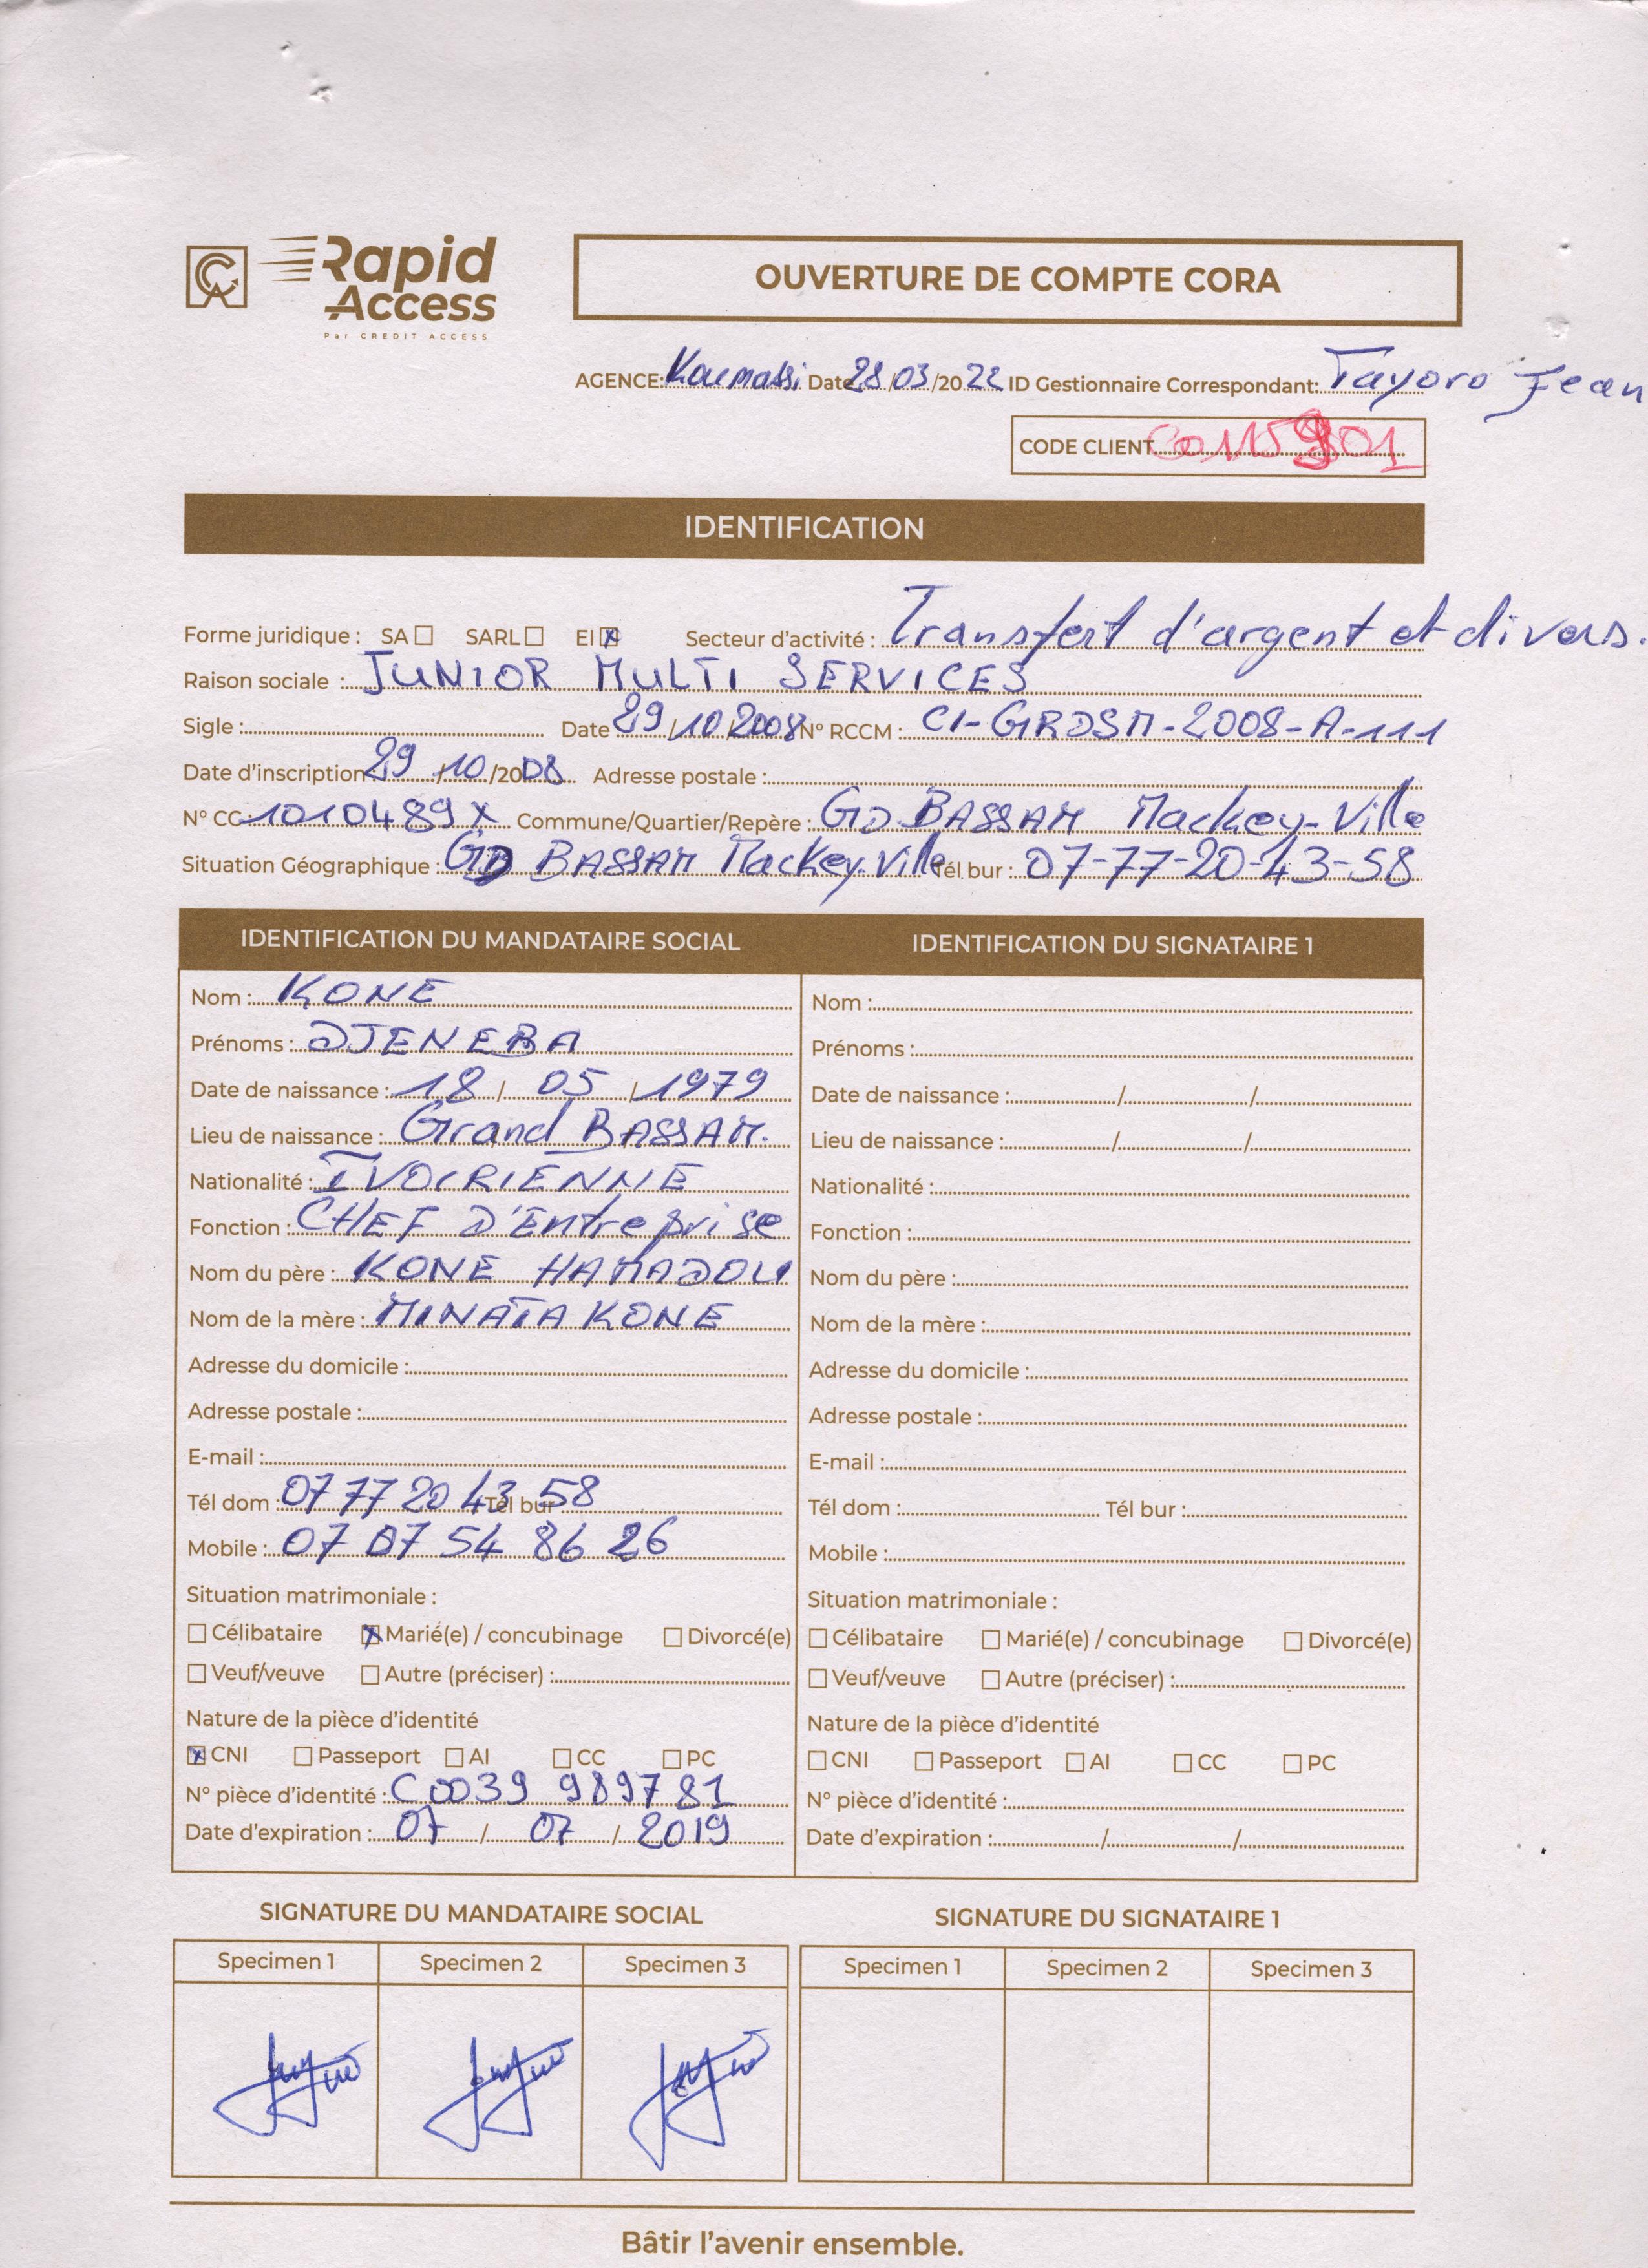 CA Rapid Access
Par CREDIT ACCESS
OUVERTURE DE COMPTE CORA
AGENCE: Koumassi Date 28/03/2022 ID Gestionnaire Correspondant: Tayoro Jean
CODE CLIENT
IDENTIFICATION
Forme juridique : SA ☐ SARL ☐ EI ☒ Secteur d'activité : Transfert d'argent et divers.
Raison sociale : JUNIOR MULTI SERVICES
Sigle : Date 29/10/2008 N° RCCM : CI-GRDSM-2008-A-111
Date d'inscription 29/10/2008 Adresse postale :
N° CC 1010489 X Commune/Quartier/Repère : GD BASSAM Mackey-Ville
Situation Géographique : GD BASSAM Mackey-Ville Tél bur : 07-77-20-43-58
IDENTIFICATION DU MANDATAIRE SOCIAL
Nom : KONE
Prénoms : DJENEBA
Date de naissance : 18 / 05 / 1979
Lieu de naissance : Grand BASSAM.
Nationalité : IVOIRIENNE
Fonction : CHEF D'Entreprise
Nom du père : KONE HAMADOU
Nom de la mère : MINATA KONE
Adresse du domicile :
Adresse postale :
E-mail :
Tél dom : 07 77 20 43 58 Tél bur
Mobile : 07 07 54 86 26
Situation matrimoniale :
☐ Célibataire ☒ Marié(e) / concubinage ☐ Divorcé(e)
☐ Veuf/veuve ☐ Autre (préciser) :
Nature de la pièce d'identité
☒ CNI ☐ Passeport ☐ AI ☐ CC ☐ PC
N° pièce d'identité : C0039 9897 81
Date d'expiration : 07 / 07 / 2019
IDENTIFICATION DU SIGNATAIRE 1
Nom :
Prénoms :
Date de naissance : / /
Lieu de naissance : / /
Nationalité :
Fonction :
Nom du père :
Nom de la mère :
Adresse du domicile :
Adresse postale :
E-mail :
Tél dom : Tél bur :
Mobile :
Situation matrimoniale :
☐ Célibataire ☐ Marié(e) / concubinage ☐ Divorcé(e)
☐ Veuf/veuve ☐ Autre (préciser) :
Nature de la pièce d'identité
☐ CNI ☐ Passeport ☐ AI ☐ CC ☐ PC
N° pièce d'identité :
Date d'expiration : / /
SIGNATURE DU MANDATAIRE SOCIAL
Specimen 1 Specimen 2 Specimen 3
SIGNATURE DU SIGNATAIRE 1
Specimen 1 Specimen 2 Specimen 3
Bâtir l'avenir ensemble.